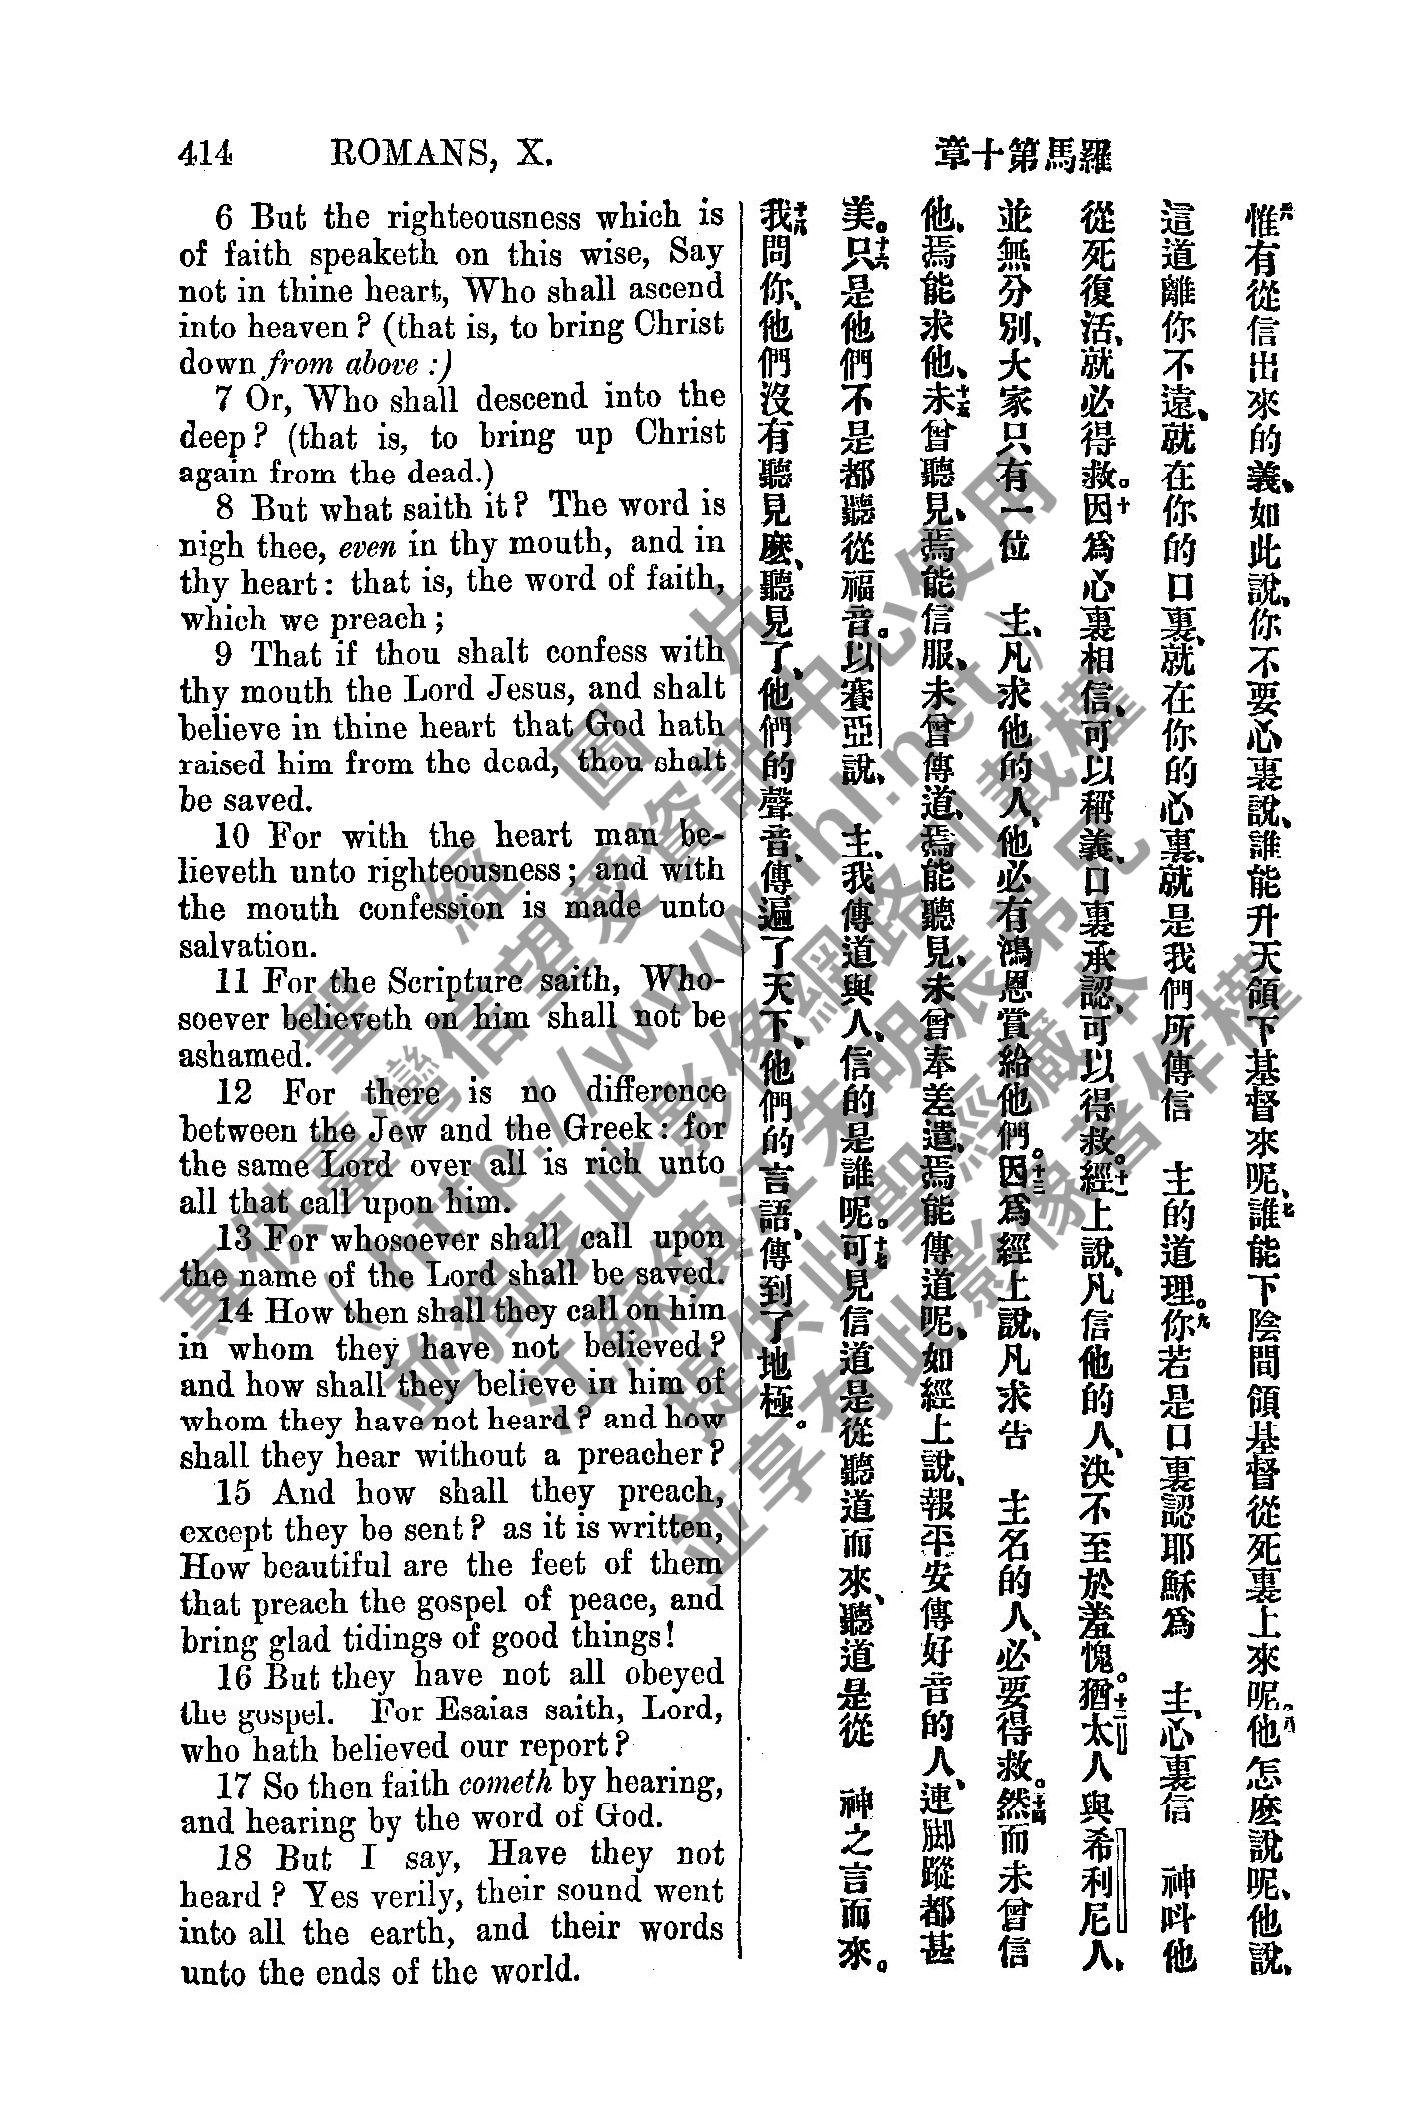 414 ROMANS, X.
章十第馬羅
6 But the righteousness which is
of faith speaketh on this wise, Say
not in thine heart, Who shall ascend
into heaven? (that is, to bring Christ
down from above:)
7 Or, Who shall descend into the
deep? (that is, to bring up Christ
again from the dead.)
8 But what saith it? The word is
nigh thee, even in thy mouth, and in
thy heart: that is, the word of faith,
which we preach;
9 That if thou shalt confess with
thy mouth the Lord Jesus, and shalt
believe in thine heart that God hath
raised him from the dead, thou shalt
be saved.
10 For with the heart man be-
lieveth unto righteousness; and with
the mouth confession is made unto
salvation.
11 For the Scripture saith, Who-
soever believeth on him shall not be
ashamed.
12 For there is no difference
between the Jew and the Greek: for
the same Lord over all is rich unto
all that call upon him.
13 For whosoever shall call upon
the name of the Lord shall be saved.
14 How then shall they call on him
in whom they have not believed?
and how shall they believe in him of
whom they have not heard? and how
shall they hear without a preacher?
15 And how shall they preach,
except they be sent? as it is written,
How beautiful are the feet of them
that preach the gospel of peace, and
bring glad tidings of good things!
16 But they have not all obeyed
the gospel. For Esaias saith, Lord,
who hath believed our report?
17 So then faith cometh by hearing,
and hearing by the word of God.
18 But I say, Have they not
heard? Yes verily, their sound went
into all the earth, and their words
unto the ends of the world.
六惟有從信出來的義、如此說、你不要心裏說、誰能升天領下基督來呢、七誰能下陰間領基督從死裏上來呢。八他怎麽說呢、他說、
這道離你不遠、就在你的口裏、就在你的心裏、就是我們所傳信 主的道理。九你若是口裏認耶穌爲 主、心裏信 神呌他
從死復活、就必得救。十因爲心裏相信、可以稱義、口裏承認、可以得救。十一經上說、凡信他的人、決不至於羞愧。十二猶太人與希利尼人、
並無分別、大家只有一位 主、凡求他的人、他必有鴻恩賞給他們。十三因爲經上說、凡求告 主名的人、必要得救。十四然而未曾信
他、焉能求他、十五未曾聽見、焉能信服、未曾傳道、焉能聽見、未曾奉差遣、焉能傳道呢、如經上說、報平安傳好音的人、連脚蹤都甚
美。十六只是他們不是都聽從福音。以賽亞說、 主、我傳道與人、信的是誰呢。十七可見信道是從聽道而來、聽道是從 神之言而來。
十八我問你、他們沒有聽見麽、聽見了、他們的聲音、傳遍了天下、他們的言語、傳到了地極。
聖 經 圖 片
專供臺灣信望愛資訊中心使用
（http://www.fhl.net）
並獨享此影像網路刊載權
江蘇鎮江朱明辰弟兄
提供此聖經藏本
並享有此影像著作權